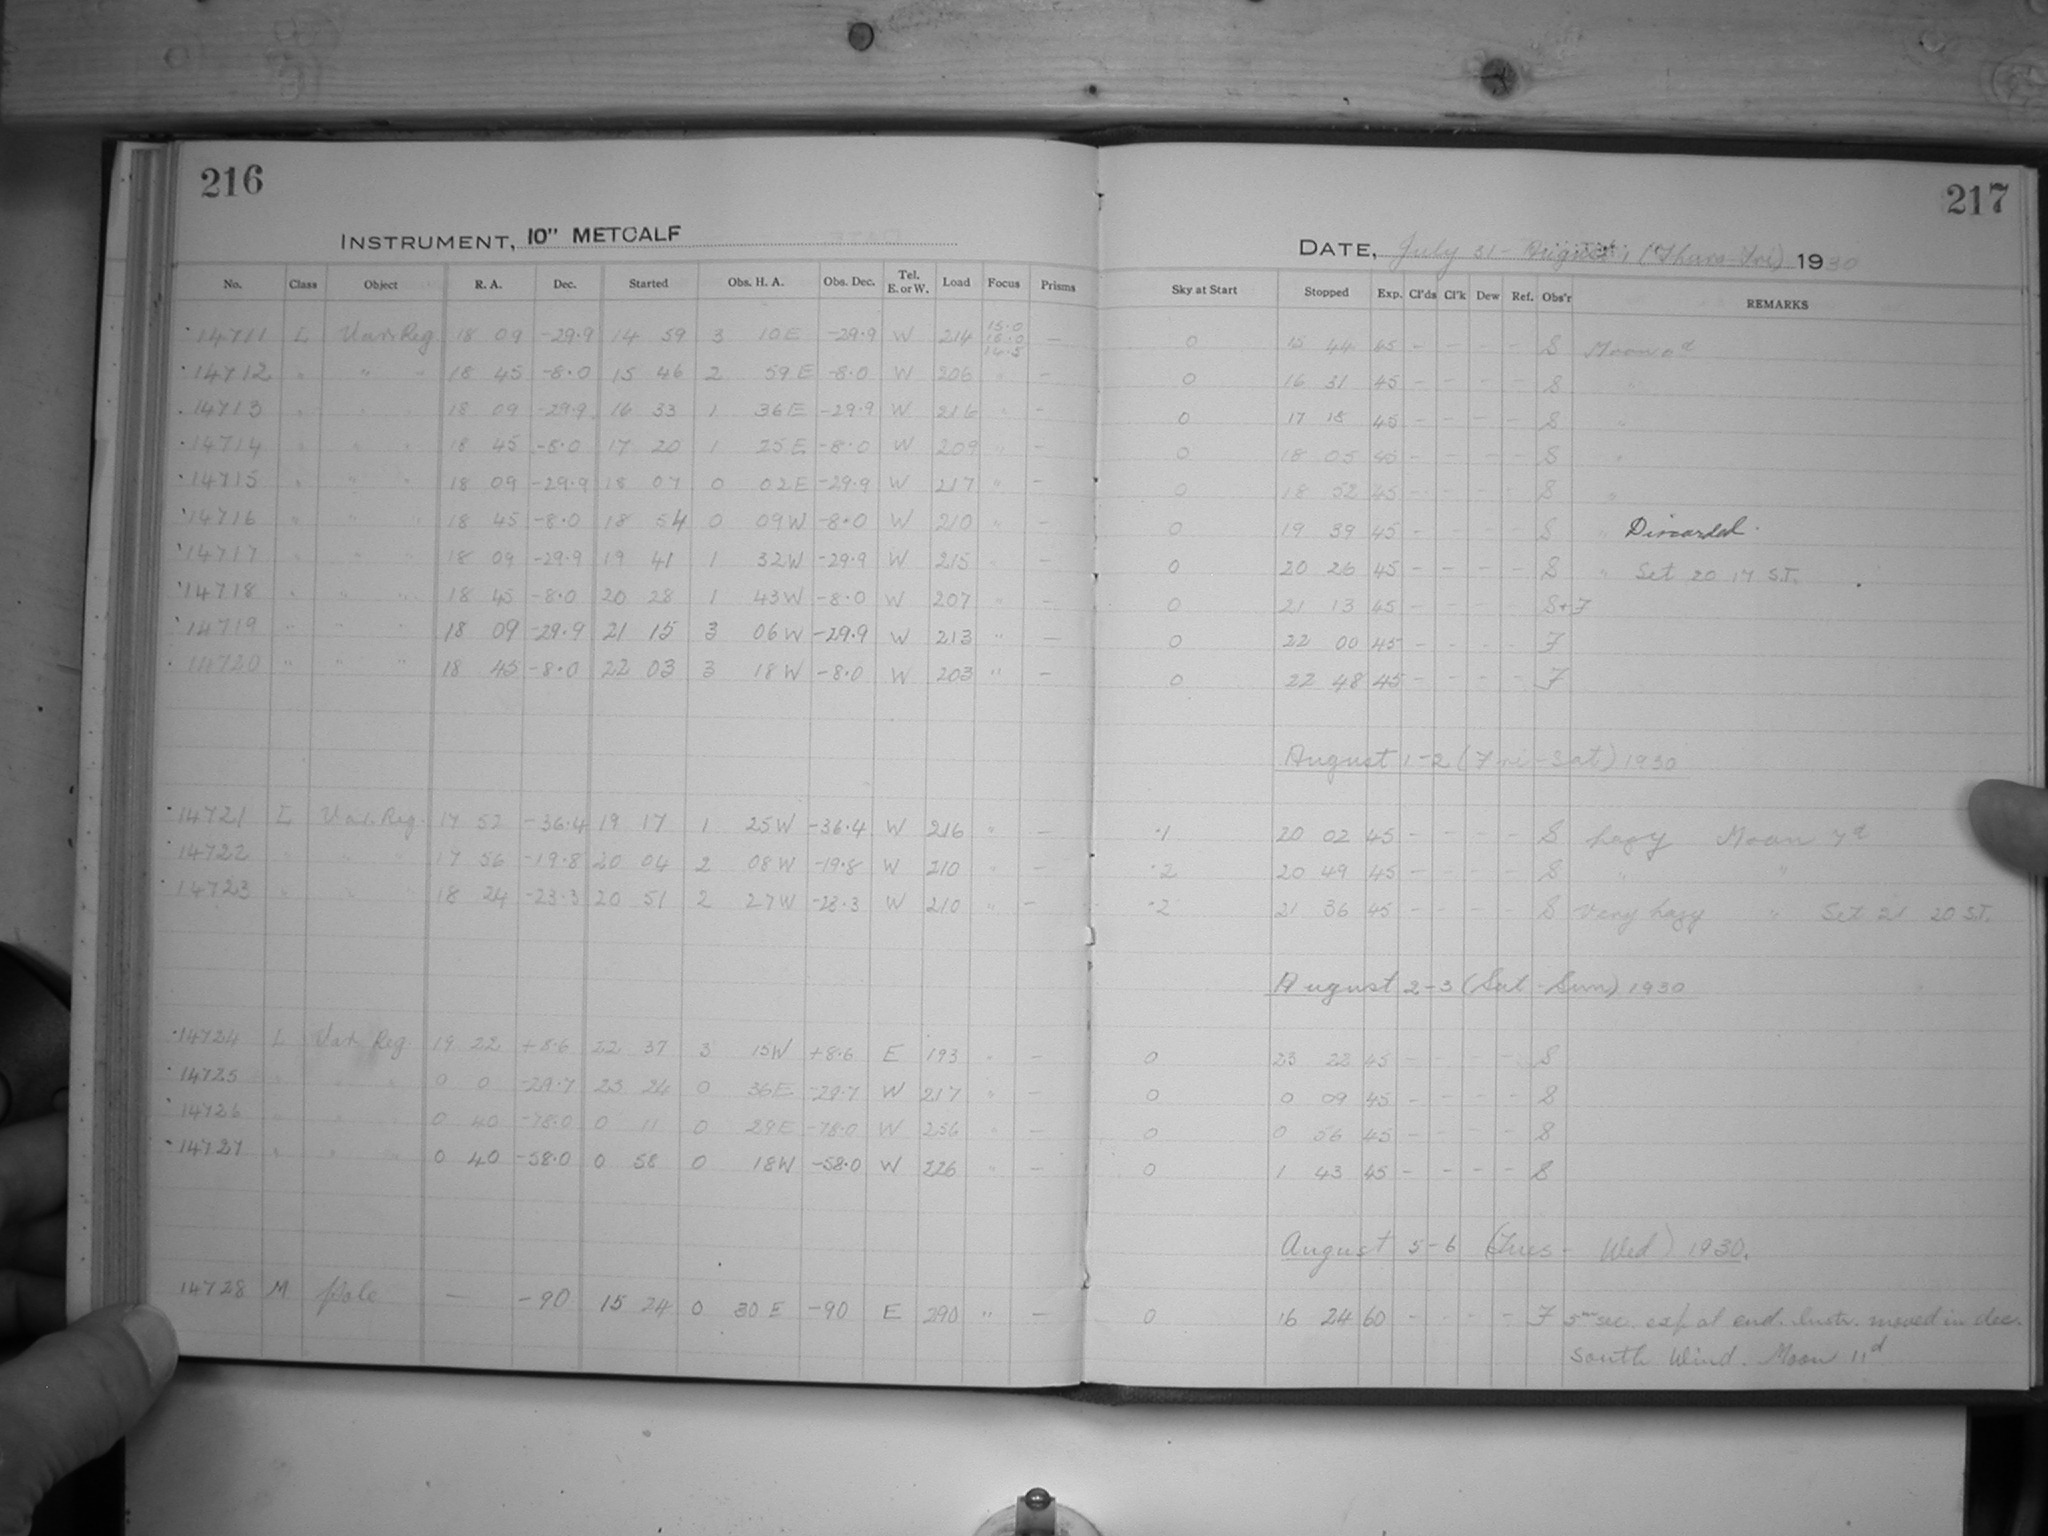 216
INSTRUMENT, 10" METCALF
No. Class Object R. A. Dec. Started Obs. H. A. Obs. Dec. Tel. E. or W. Load Focus Prisms
14711 L Var. Reg. 18 09 -29.9 14 59 3 10 E -29.9 W 214 15.0 16.0 14.5 —
14712 " " " 18 45 -8.0 15 46 2 59 E -8.0 W 206 " —
14713 " " " 18 09 -29.9 16 33 1 36 E -29.9 W 216 " —
14714 " " " 18 45 -8.0 17 20 1 25 E -8.0 W 209 " —
14715 " " " 18 09 -29.9 18 07 0 02 E -29.9 W 217 " —
14716 " " " 18 45 -8.0 18 54 0 09 W -8.0 W 210 " —
14717 " " " 18 09 -29.9 19 41 1 32 W -29.9 W 215 " —
14718 " " " 18 45 -8.0 20 28 1 43 W -8.0 W 207 " —
14719 " " " 18 09 -29.9 21 15 3 06 W -29.9 W 213 " —
14720 " " " 18 45 -8.0 22 03 3 18 W -8.0 W 203 " —
14721 L Var. Reg. 17 52 -36.4 19 17 1 25 W -36.4 W 216 " —
14722 " " " 17 56 -19.8 20 04 2 08 W -19.8 W 210 " —
14723 " " " 18 24 -23.3 20 51 2 27 W -23.3 W 210 " —
14724 L Var. Reg. 19 22 +8.6 22 37 3 15 W +8.6 E 193 " —
14725 " " " 0 0 -29.7 23 24 0 36 E -29.7 W 217 " —
14726 " " " 0 40 -78.0 0 11 0 29 E -78.0 W 256 " —
14727 " " " 0 40 -58.0 0 58 0 18 W -58.0 W 226 " —
14728 M Pole — -90 15 24 0 30 E -90 E 290 " —
217
DATE, July 31 - August 1 (Thurs-Fri) 1930
Sky at Start Stopped Exp. Cl'ds Cl'k Dew Ref. Obs'r REMARKS
0 15 44 45 - - - - S Moon 6d
0 16 31 45 - - - - S "
0 17 18 45 - - - - S "
0 18 05 45 - - - - S "
0 18 52 45 - - - - S "
0 19 39 45 - - - - S " Discarded.
0 20 26 45 - - - - S " Set 20 17 S.T.
0 21 13 45 - - - - S+F
0 22 00 45 - - - - F
0 22 48 45 - - - - F
August 1-2 (Fri-Sat) 1930
.1 20 02 45 - - - - S hazy Moon 7d
.2 20 49 45 - - - - S " "
.2 21 36 45 - - - - S Very hazy " Set 21 20 S.T.
August 2-3 (Sat-Sun) 1930
0 23 22 45 - - - - S
0 0 09 45 - - - - S
0 0 56 45 - - - - S
0 1 43 45 - - - - S
August 5-6 (Tues - Wed) 1930.
0 16 24 60 - - - - F 5 sec. exp. at end. Instr. moved in dec.
South Wind. Moon 11d